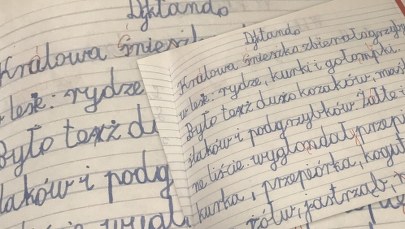 Dyktando
Królowa
w lesie: rydze
Było też du
laków i podg
Dyktando
Królowa śnieszka zbierała grzyby
w lesie: rydze, kurki i gołompki.
Było też dużo kozaków, maś
laków i podgrzybków żółte i
ne liście wyglondały przep
kurka, przepiórka, kogut
żółw, jastrząb,